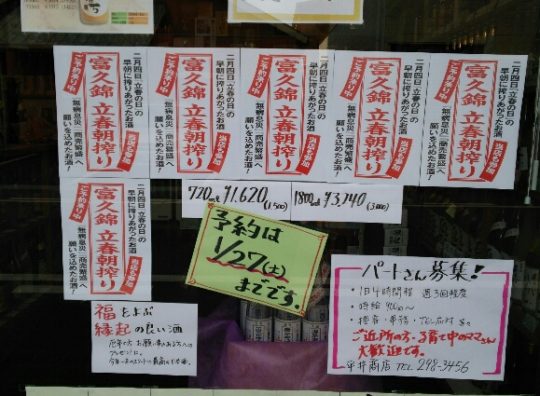 二月四日 立春の日の
早朝に搾りあがったお酒!
富久錦 立春朝搾り
ご予約承り中
無病息災、商売繁盛へ
願いを込めたお酒!
二月四日 立春の日の
早朝に搾りあがったお酒!
富久錦 立春朝搾り
ご予約承り中
無病息災、商売繁盛へ
願いを込めたお酒!
二月四日 立春の日の
早朝に搾りあがったお酒!
富久錦 立春朝搾り
ご予約承り中
無病息災、商売繁盛へ
願いを込めたお酒!
二月四日 立春の日の
早朝に搾りあがったお酒!
富久錦 立春朝搾り
ご予約承り中
無病息災、商売繁盛へ
願いを込めたお酒!
二月四日 立春の日の
早朝に搾りあがったお酒!
富久錦 立春朝搾り
ご予約承り中
無病息災、商売繁盛へ
願いを込めたお酒!
720ml ¥1,620 (1500)
1800ml ¥3,240 (3000)
二月四日 立春の日の
早朝に搾りあがったお酒!
富久錦 立春朝搾り
ご予約承り中
無病息災、商売繁盛へ
願いを込めたお酒!
予約は
1/27(土)
までです。
福をよぶ
縁起の良い酒
パートさん募集!
・1日4時間程 週3回程度
・時給
・接客・
ご近所の方・子育て中のママさん
大歓迎です。
平井商店 TEL 298-3456